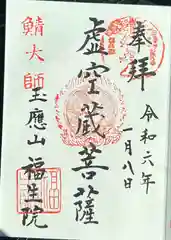 奉拝
令和六年
一月八日
虚空蔵菩薩
鯖大師
玉應山
福生院